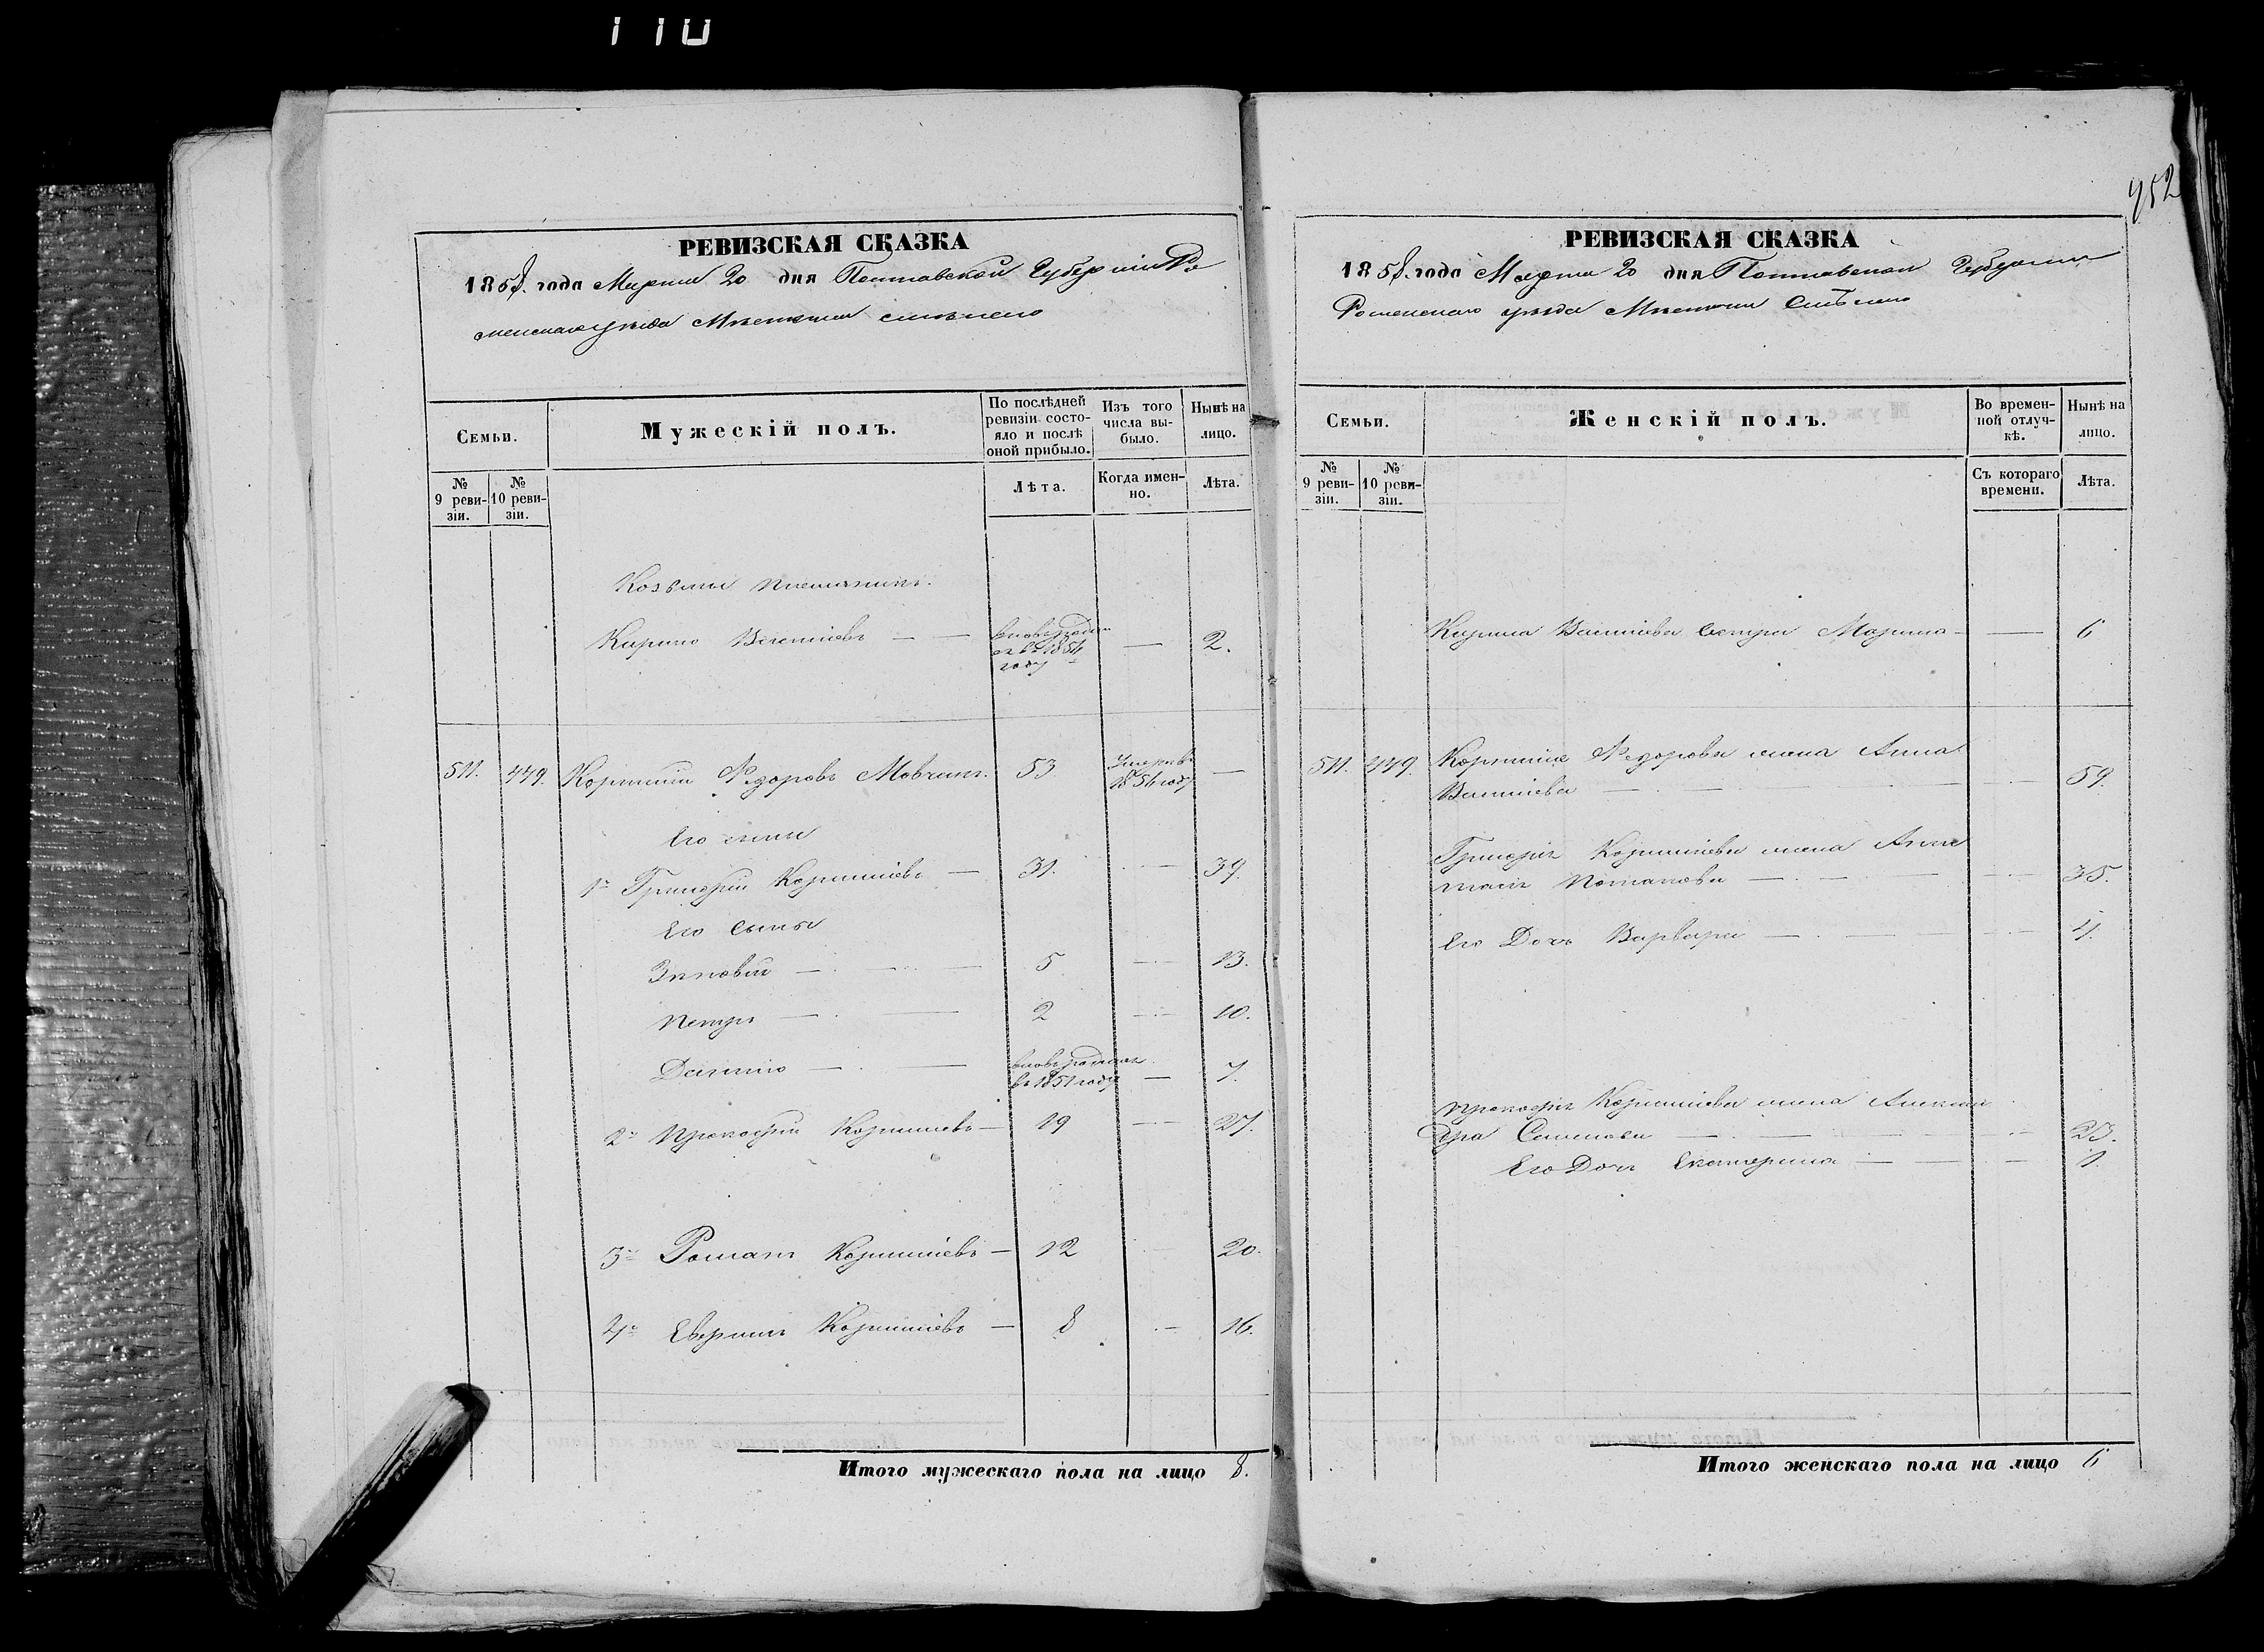 110
РЕВИЗСКАЯ СКАЗКА
1858. года Марта 20 дня Полтавской Губерніи Ро
менскаго уѣзда Мѣстечка Смѣлаго
Семьи.
Мужескій полъ.
По послѣдней ревизіи состояло и послѣ оной прибыло.
Изъ того числа выбыло.
Нынѣ на лицо.
№ 9 ревизіи.
№ 10 ревизіи.
Лѣта.
Когда именно.
Лѣта.
Козьмы племянникъ.
Кирило Василіевъ — — вновь родился въ 1856 году — 2.
511. 449. Корнилій Ѳедоровъ Мовчанъ. 53 Умеръ въ 1854 году —
Его сыны
1й Григорій Корниліевъ — 31. — 39.
Его Сыны
Зиновій — 5 — 13.
Петръ — 2 — 10.
Данило — вновь родился въ 1851 году — 7.
2й Прокофій Корниліевъ — 19 — 27.
3й Романъ Корниліевъ — 12 20.
4й Корниліевъ — 8 — 16.
Итого мужескаго пола на лицо 8.
952
РЕВИЗСКАЯ СКАЗКА
1858. года Марта 20 дня Полтавской Губерніи
Роменскаго уѣзда Мѣстечка Смѣлаго
Семьи.
Женскій полъ.
Во временной отлучкѣ.
Нынѣ на лицо.
№ 9 ревизіи.
№ 10 ревизіи.
Съ котораго времени.
Лѣта.
Кирила Василіева Сестра Марина — — 6
511. 449. Корнилія Ѳедорова жена Анна
Василіева — 59.
Григорія Корниліева жена
Потапова — 35.
Его Дочь Варвара — 4.
Прокофія Корниліева жена Александра Семенова — 23.
Его Дочь Екатерина — 1.
Итого женскаго пола на лицо 6